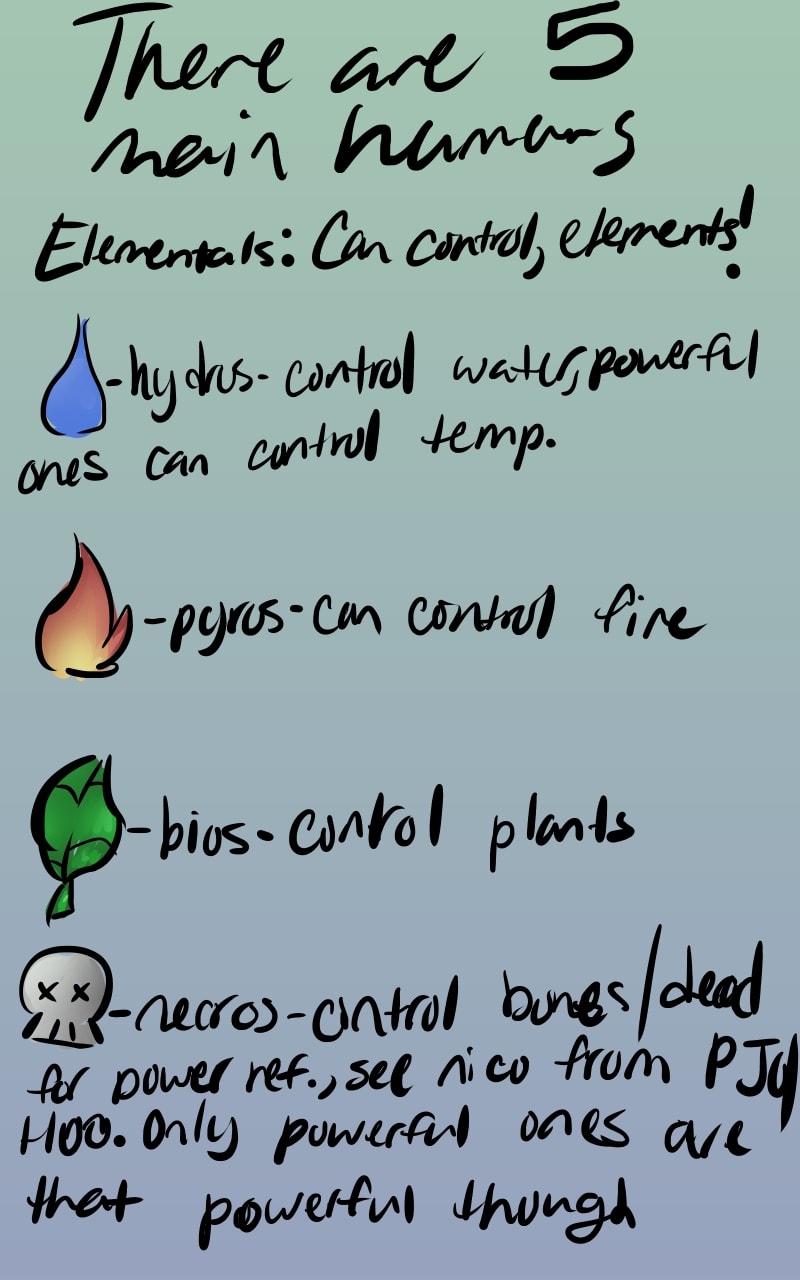 There are 5
main humans
Elementals: Can control, elements!
-hydros- control water, powerful
ones can control temp.
-pyros-can control fire
-bios-control plants
-necros-control bones/dead
for power ref., see nico from PJ
HOO. Only powerful ones are
that powerful though